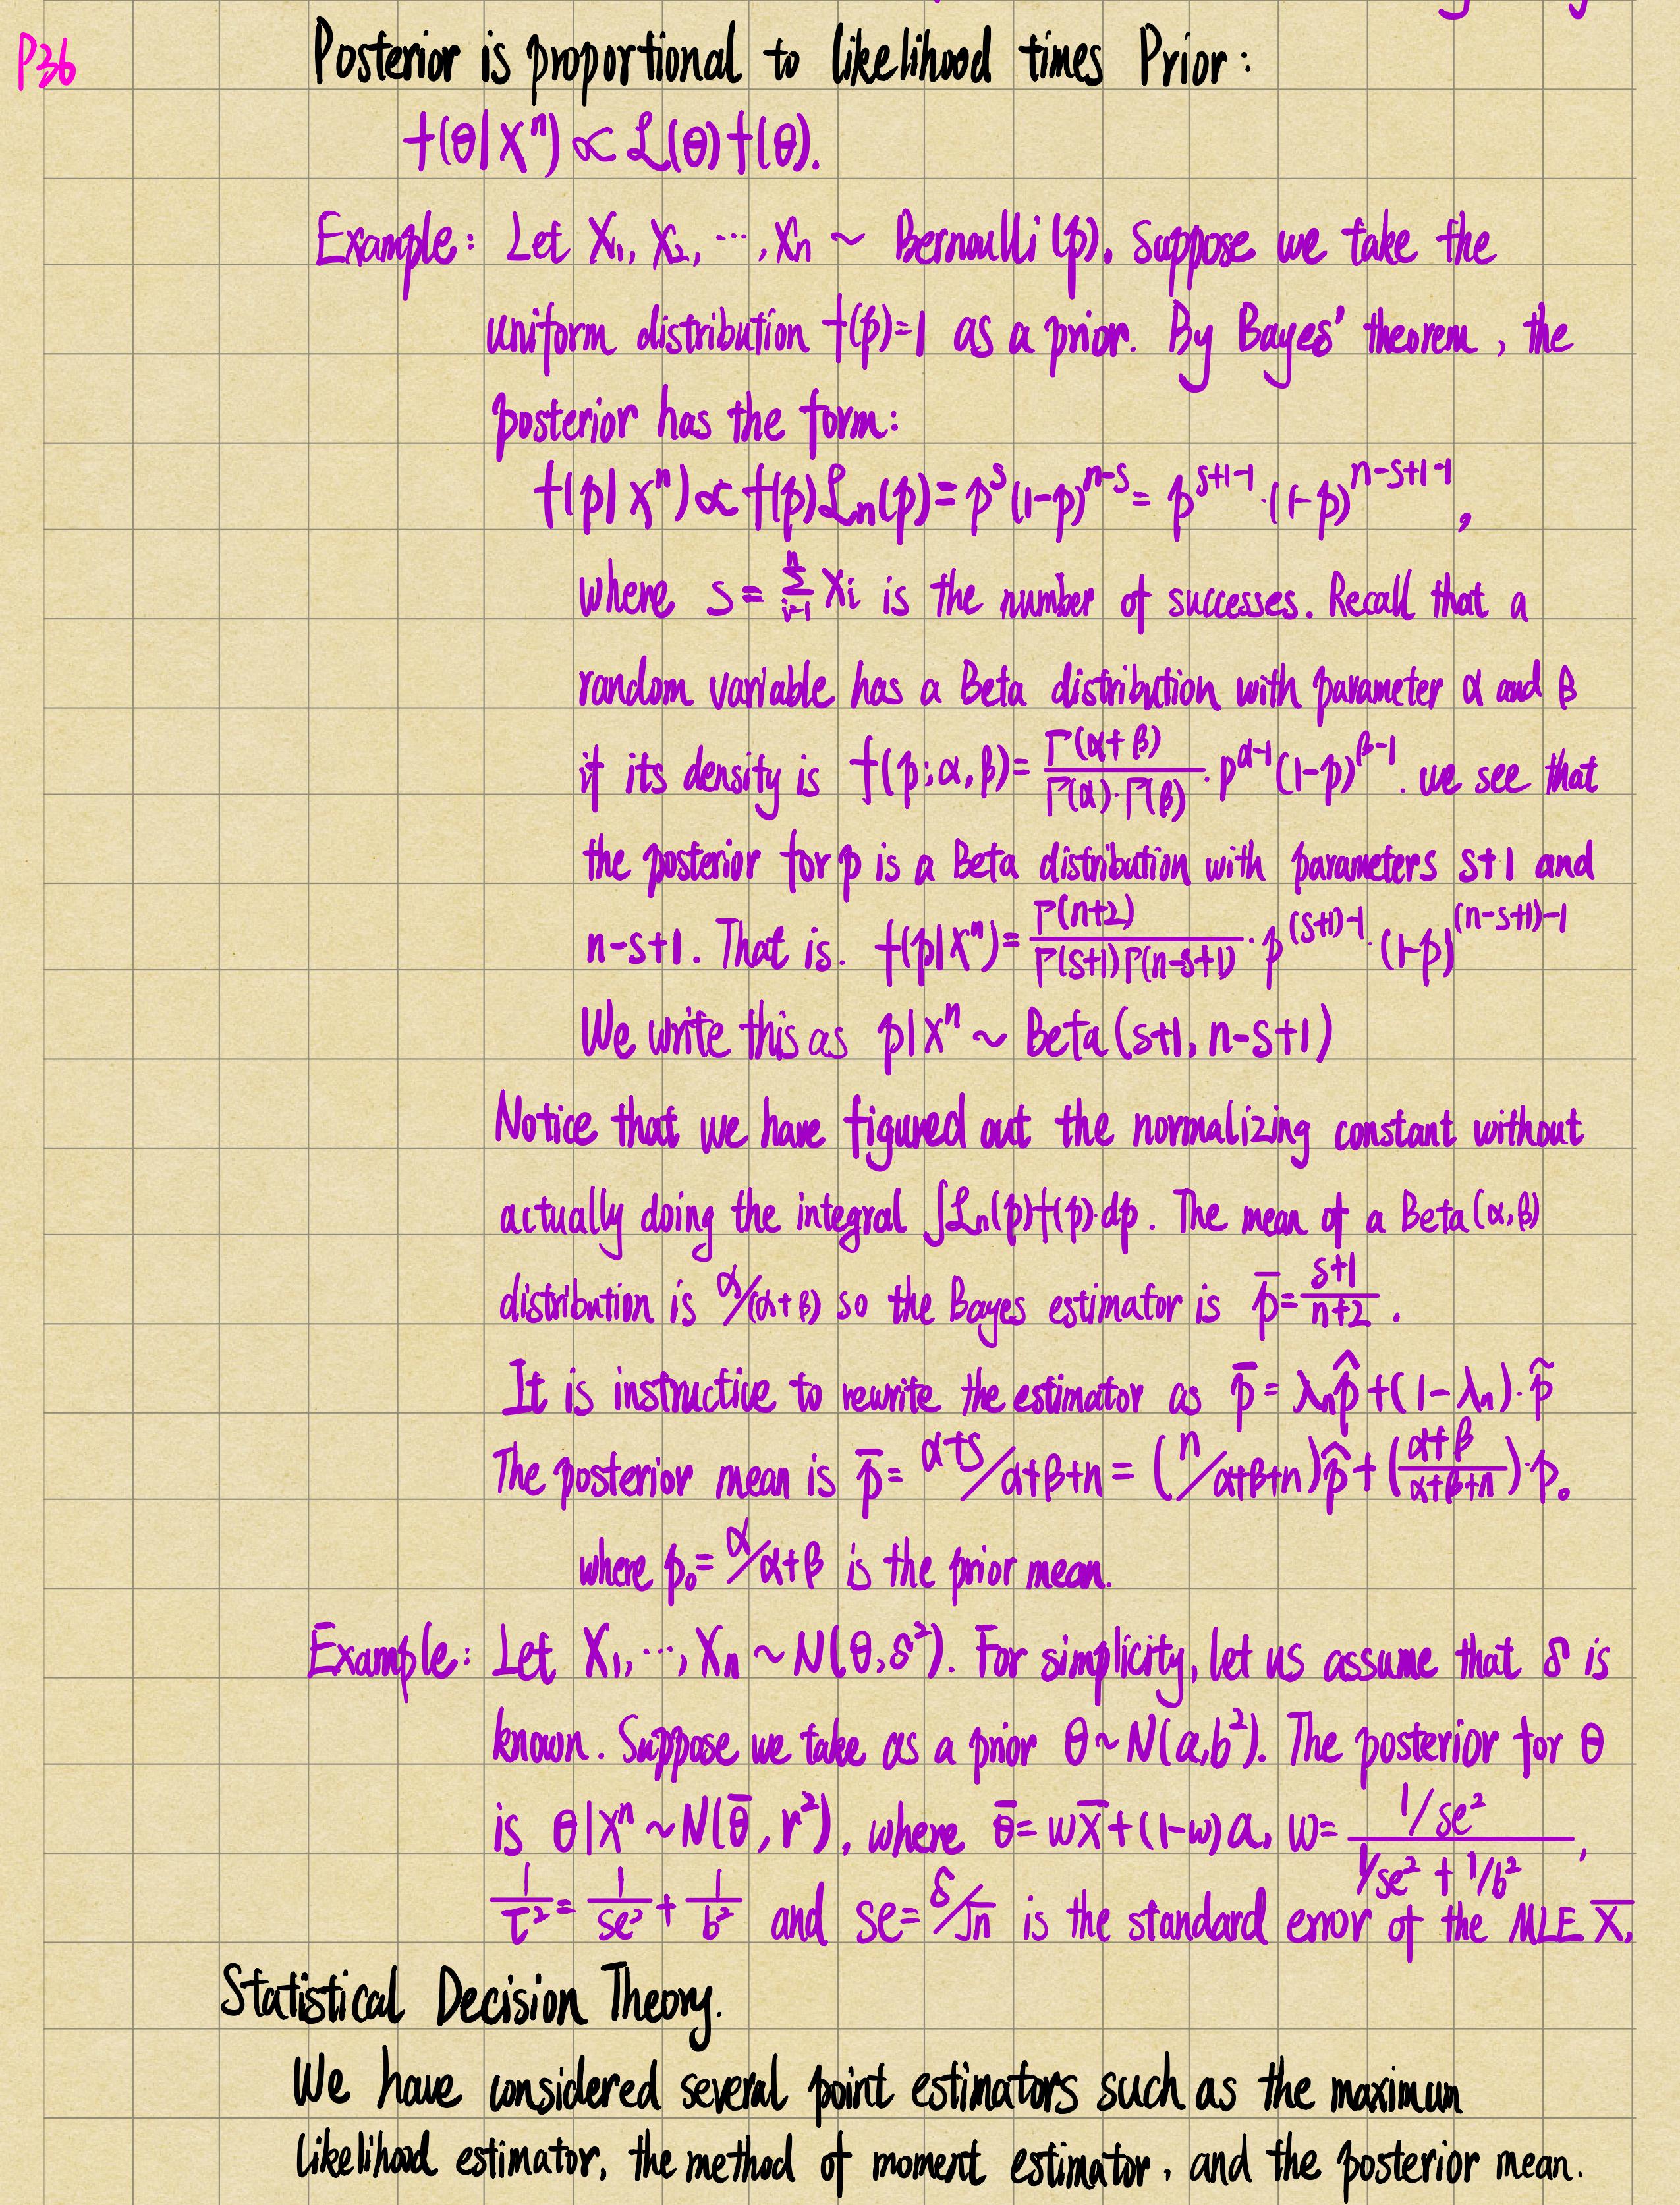 P36
Posterior is proportional to likelihood times Prior:
f(θ|Xⁿ) ∝ ℒ(θ)f(θ).
Example: Let X₁, X₂, ⋯, Xn ~ Bernoulli (p). Suppose we take the
uniform distribution f(p)=1 as a prior. By Bayes' theorem, the
posterior has the form:
f(p|xⁿ) ∝ f(p)ℒn(p) = p^s (1-p)^{n-s} = p^{s+1-1}·(1-p)^{n-s+1-1},
where s = Σ_{i=1}^{n} Xi is the number of successes. Recall that a
random variable has a Beta distribution with parameter α and β
if its density is f(p;α,β) = Γ(α+β)/(Γ(α)·Γ(β)) · p^{α-1}(1-p)^{β-1}. we see that
the posterior for p is a Beta distribution with parameters s+1 and
n-s+1. That is. f(p|xⁿ) = Γ(n+2)/(Γ(s+1)Γ(n-s+1)) · p^{(s+1)-1}·(1-p)^{(n-s+1)-1}
We write this as p|xⁿ ~ Beta(s+1, n-s+1)
Notice that we have figured out the normalizing constant without
actually doing the integral ∫ℒn(p)f(p)·dp. The mean of a Beta(α,β)
distribution is α/(α+β) so the Bayes estimator is p̄ = (s+1)/(n+2).
It is instructive to rewrite the estimator as p̄ = λn p̂ + (1-λn)·p̃
The posterior mean is p̄ = α+s/α+β+n = (n/α+β+n)p̂ + (α+β/α+β+n)·p₀
where p₀ = α/α+β is the prior mean.
Example: Let X₁, ⋯, Xn ~ N(θ, δ²). For simplicity, let us assume that δ is
known. Suppose we take as a prior θ ~ N(a,b²). The posterior for θ
is θ|Xⁿ ~ N(θ̄, r²), where θ̄ = wX̄ + (1-w)a, w = (1/se²)/(1/se² + 1/b²),
1/τ² = 1/se² + 1/b² and se = δ/√n is the standard error of the MLE X̄.
Statistical Decision Theory.
We have considered several point estimators such as the maximum
likelihood estimator, the method of moment estimator, and the posterior mean.